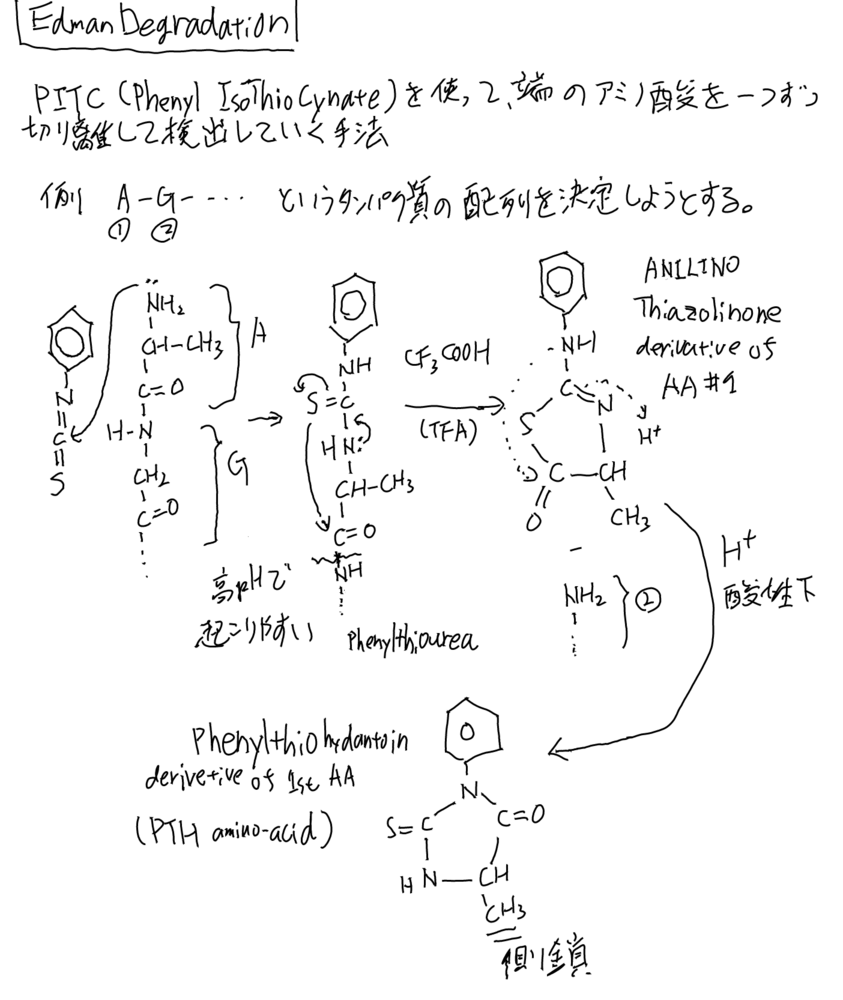 Edman Degradation
PITC (Phenyl IsoThioCynate)を使って、端のアミノ酸を一つずつ
切り離して検出していく手法
例 A-G-‥‥ というタンパク質の配列を決定しようとする。
① ②
N=C=S
NH₂
CH-CH₃
C=O
A
H-N
CH₂
C=O
G
高pHで
起こりやすい
NH
S=C
HN:
CH-CH₃
C=O
NH
Phenylthiourea
CF₃COOH
(TFA)
ANILINO
Thiazolinone
derivative of
AA #1
NH
C=N
S
H⁺
C-CH
O
CH₃
NH₂
②
H⁺
酸性下
Phenylthiohydantoin
derivetive of 1st AA
(PTH amino-acid)
N
S=C
C=O
HN-CH
CH₃
側鎖